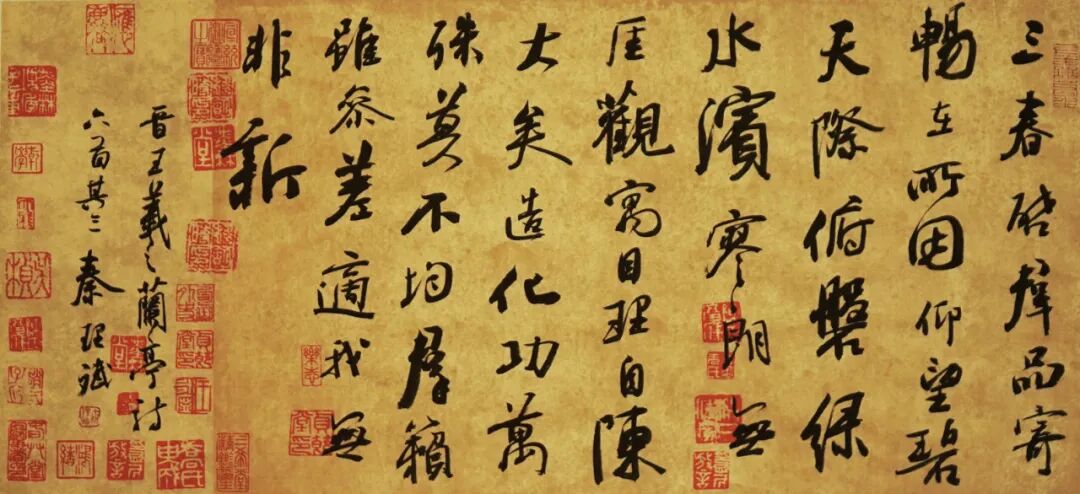 三春啓羣品寄
暢在所因仰望碧
天際俯磐綠
水濱寥々朗無
厓觀寓目理自陳
大矣造化功萬
殊莫不均羣籟
雖參差適我無
非新
晉王羲之蘭亭詩
六首其三 秦理斌